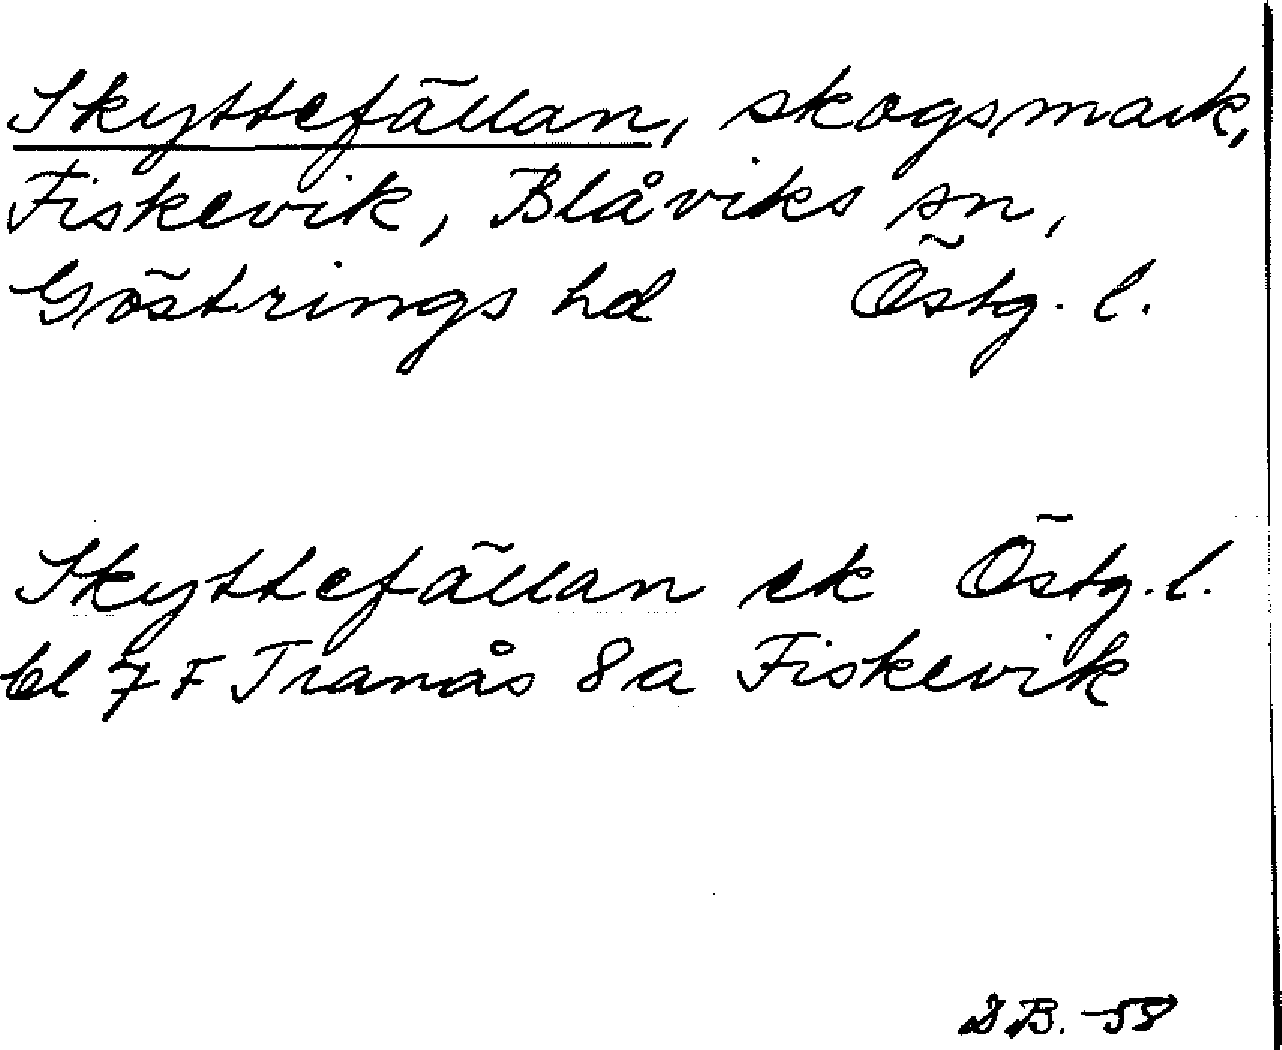 Skyttefällan, skogsmark,
Fiskevik, Blåviks sn,
Göstrings hd Östg. l.
Skyttefällan ek Östg. l.
bl 7 F Tranås 8 a Fiskevik
B. -58